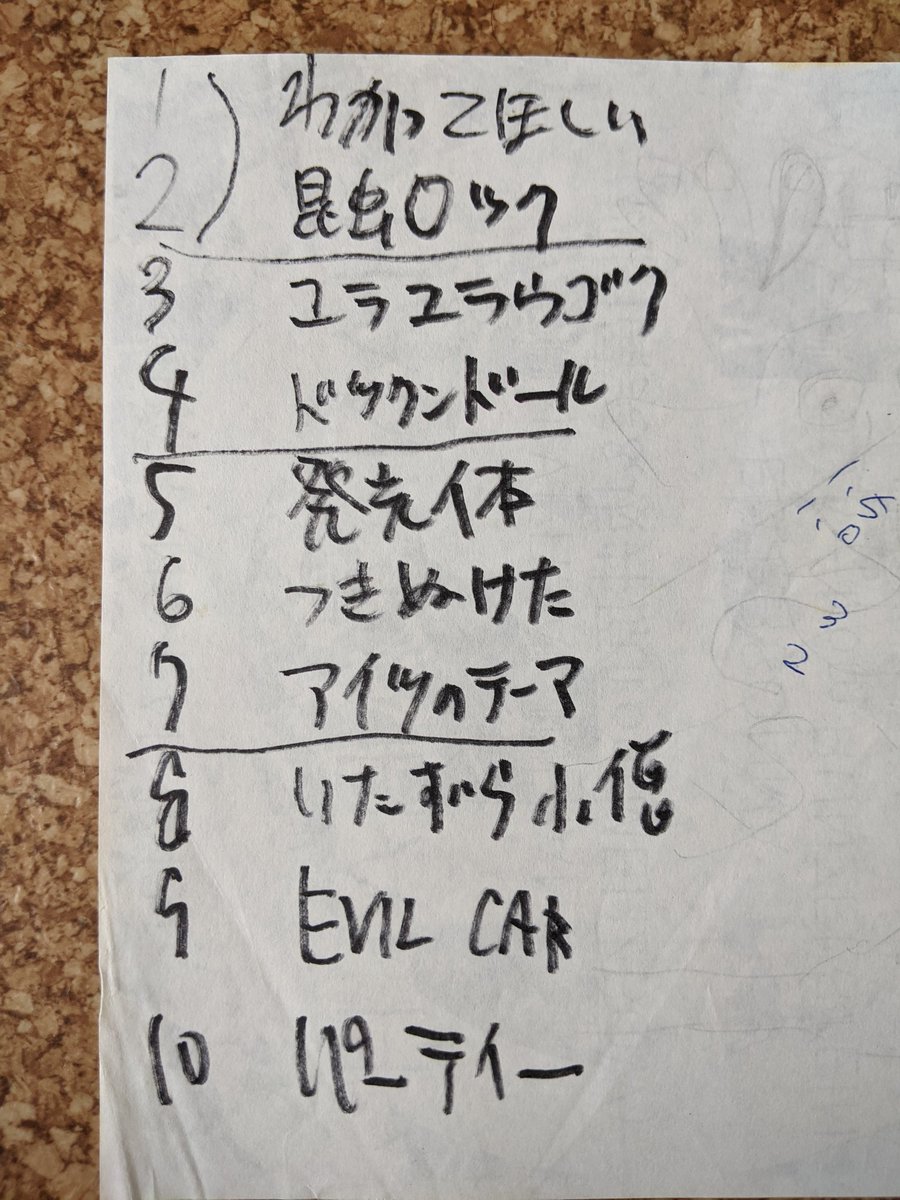 1 わかってほしい
2 昆虫ロック
3 ユラユラウゴク
4 ドックンドール
5 発光体
6 つきぬけた
7 アイツのテーマ
8 いたずら小僧
9 EVIL CAR
10 パーティー